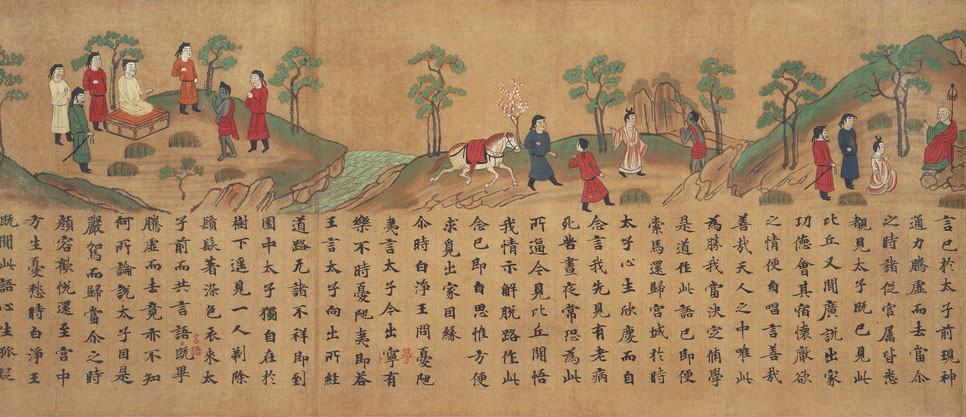 言已於太子前現神
通力騰虛而去當尒
之時諸從官属皆悉
覩見太子既已見此
比丘又聞廣說出家
功德會其宿懷厭欲
之情便自唱言善哉
善哉天人之中唯此
為勝我當決定脩學
是道作此語已即便
索馬還歸宮城於時
太子心生欣慶而自
念言我先見有老病
死苦晝夜常恐為此
所逼今見比丘開悟
我情示解脫路作此
念已即自思惟方便
求覓出家因緣
尒時白淨王問憂陁
夷言太子今出寧有
樂不時憂陁夷即荅
王言太子向出所經
道路无諸不祥即到
園中太子獨自在於
樹下遥見一人剃除
鬚髮著染色衣來太
子前而共言語既畢
言語
騰虛而去竟亦不知
何所論說太子因是
嚴駕而歸當尒之時
顏容歡恱還至宮中
方生憂愁時白淨王
既聞此語心生狐疑